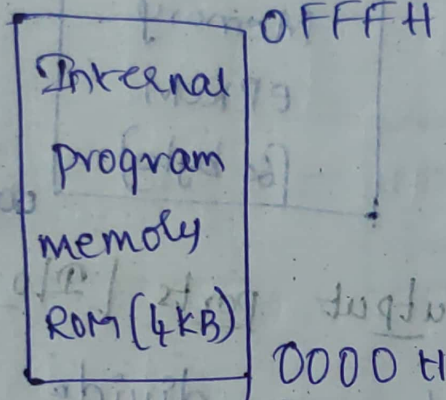 OFFFH
Internal
program
memory
ROM (4KB)
0000 H